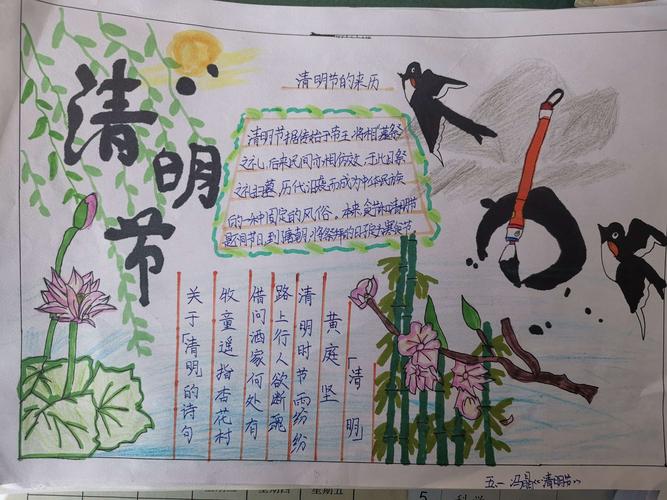 清明节
清明节的来历
清明节据传始于帝王将相"墓祭"
之礼,后来民间亦相仿效,于此日祭
之礼扫墓,历代沿袭而成为中华民族
的一种固定的风俗。本来,寒食节和清明节
是不同节日,到唐朝,将祭拜的日子定为寒食节
「清明」
黄庭坚
清明时节雨纷纷
路上行人欲断魂
借问酒家何处有
牧童遥指杏花村
关于「清明的诗句
五.一 冯晶《清明节》
星期四
星期五
5